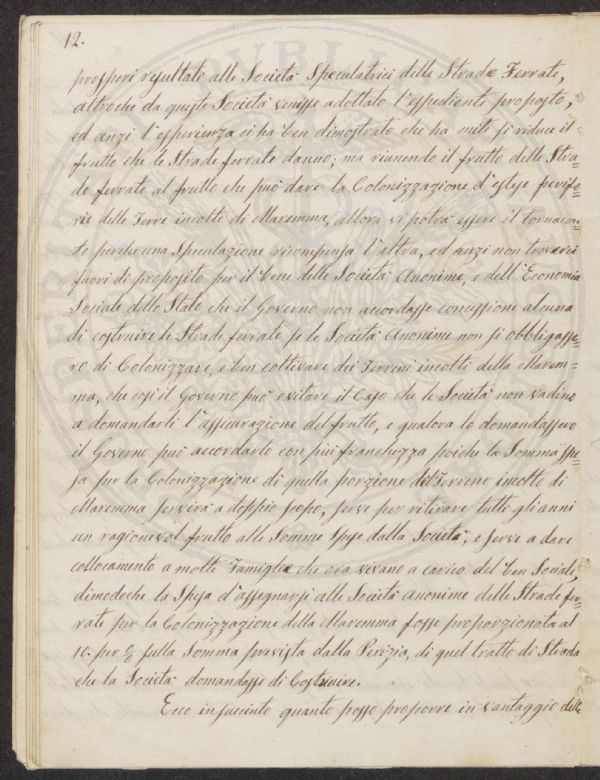 12.
prosperi resultati alle Società Speculatrici delle Strade Ferrate,
altroche da queste Società venisse adottato l'espediente proposto,
ed anzi l'esperienza ci ha ben dimostrato che ha mete si riduce il
frutto che le Strade ferrate danno; ma riunendo il frutto delle Stra=
de ferrate al frutto che può dare la Colonizzazione d'estese perife=
rie delle Terre incolte di Maremma, allora vi potrà essere il tornacon=
to perche una Speculazione ricompensa l'altra, ed anzi non troverei
fuori di proposito per il bene delle Società Anonime, e dell'Economia
Sociale dello Stato che il Governo non accordasse concessione alcuna
di costruire le Strade ferrate se le Società Anonime non si obbligasse=
ro di Colonizzare, e ben coltivare dei Terreni incolti della Marem=
ma, che così il Governo può evitare il Caso che le Società non vadino
a domandarli l'assicurazione del frutto, e qualora lo domandassero
il Governo può accordarlo con più franchezza poiche la Somma spe=
sa per la Colonizzazione di quella porzione del Terreno incolto di
Maremma servirà a doppio scopo, serve per ritirare tutti gli anni
un ragionevol frutto alle Somme spese dalla Società, e serve a dare
collocamento a molte Famiglie che ora vivano a carico del ben Sociale,
dimodoche la Spesa d'assegnarsi alle Società Anonime delle Strade fer=
rate per la Colonizzazione della Maremma fosse proporzionata al
10. per % sulla Somma prevista dalla Perizia, di quel tratto di Strada
che la Società domandasse di Costruire.
Ecco in succinto quanto posso proporre in vantaggio delle